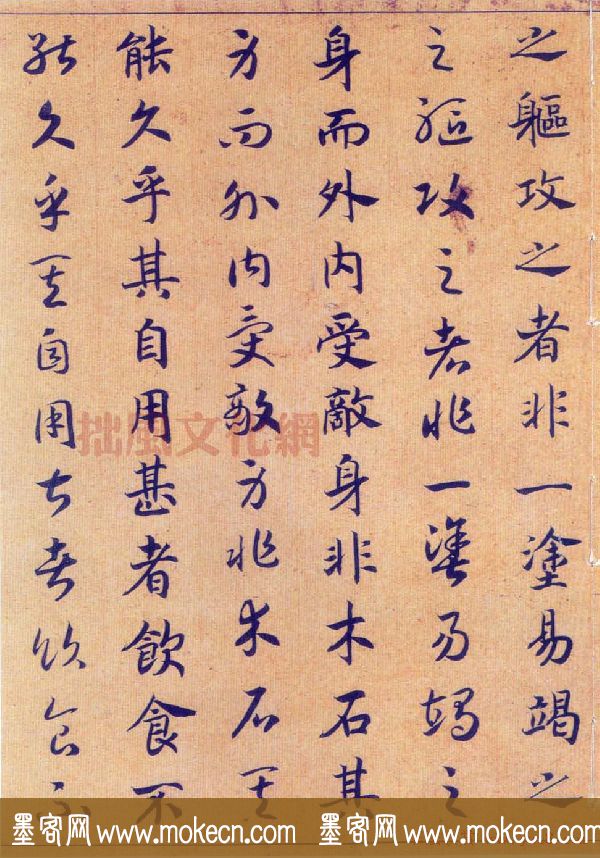 之軀攻之者非一塗易竭之
之軀攻之者非一塗易竭之
身而外內受敵身非木石其
身而外內受敵身非木石其
能久乎其自用甚者飲食不
能久乎其自用甚者飲食不
拙風文化網
墨客网 www.mokecn.com 墨客网 www.mokecn.com